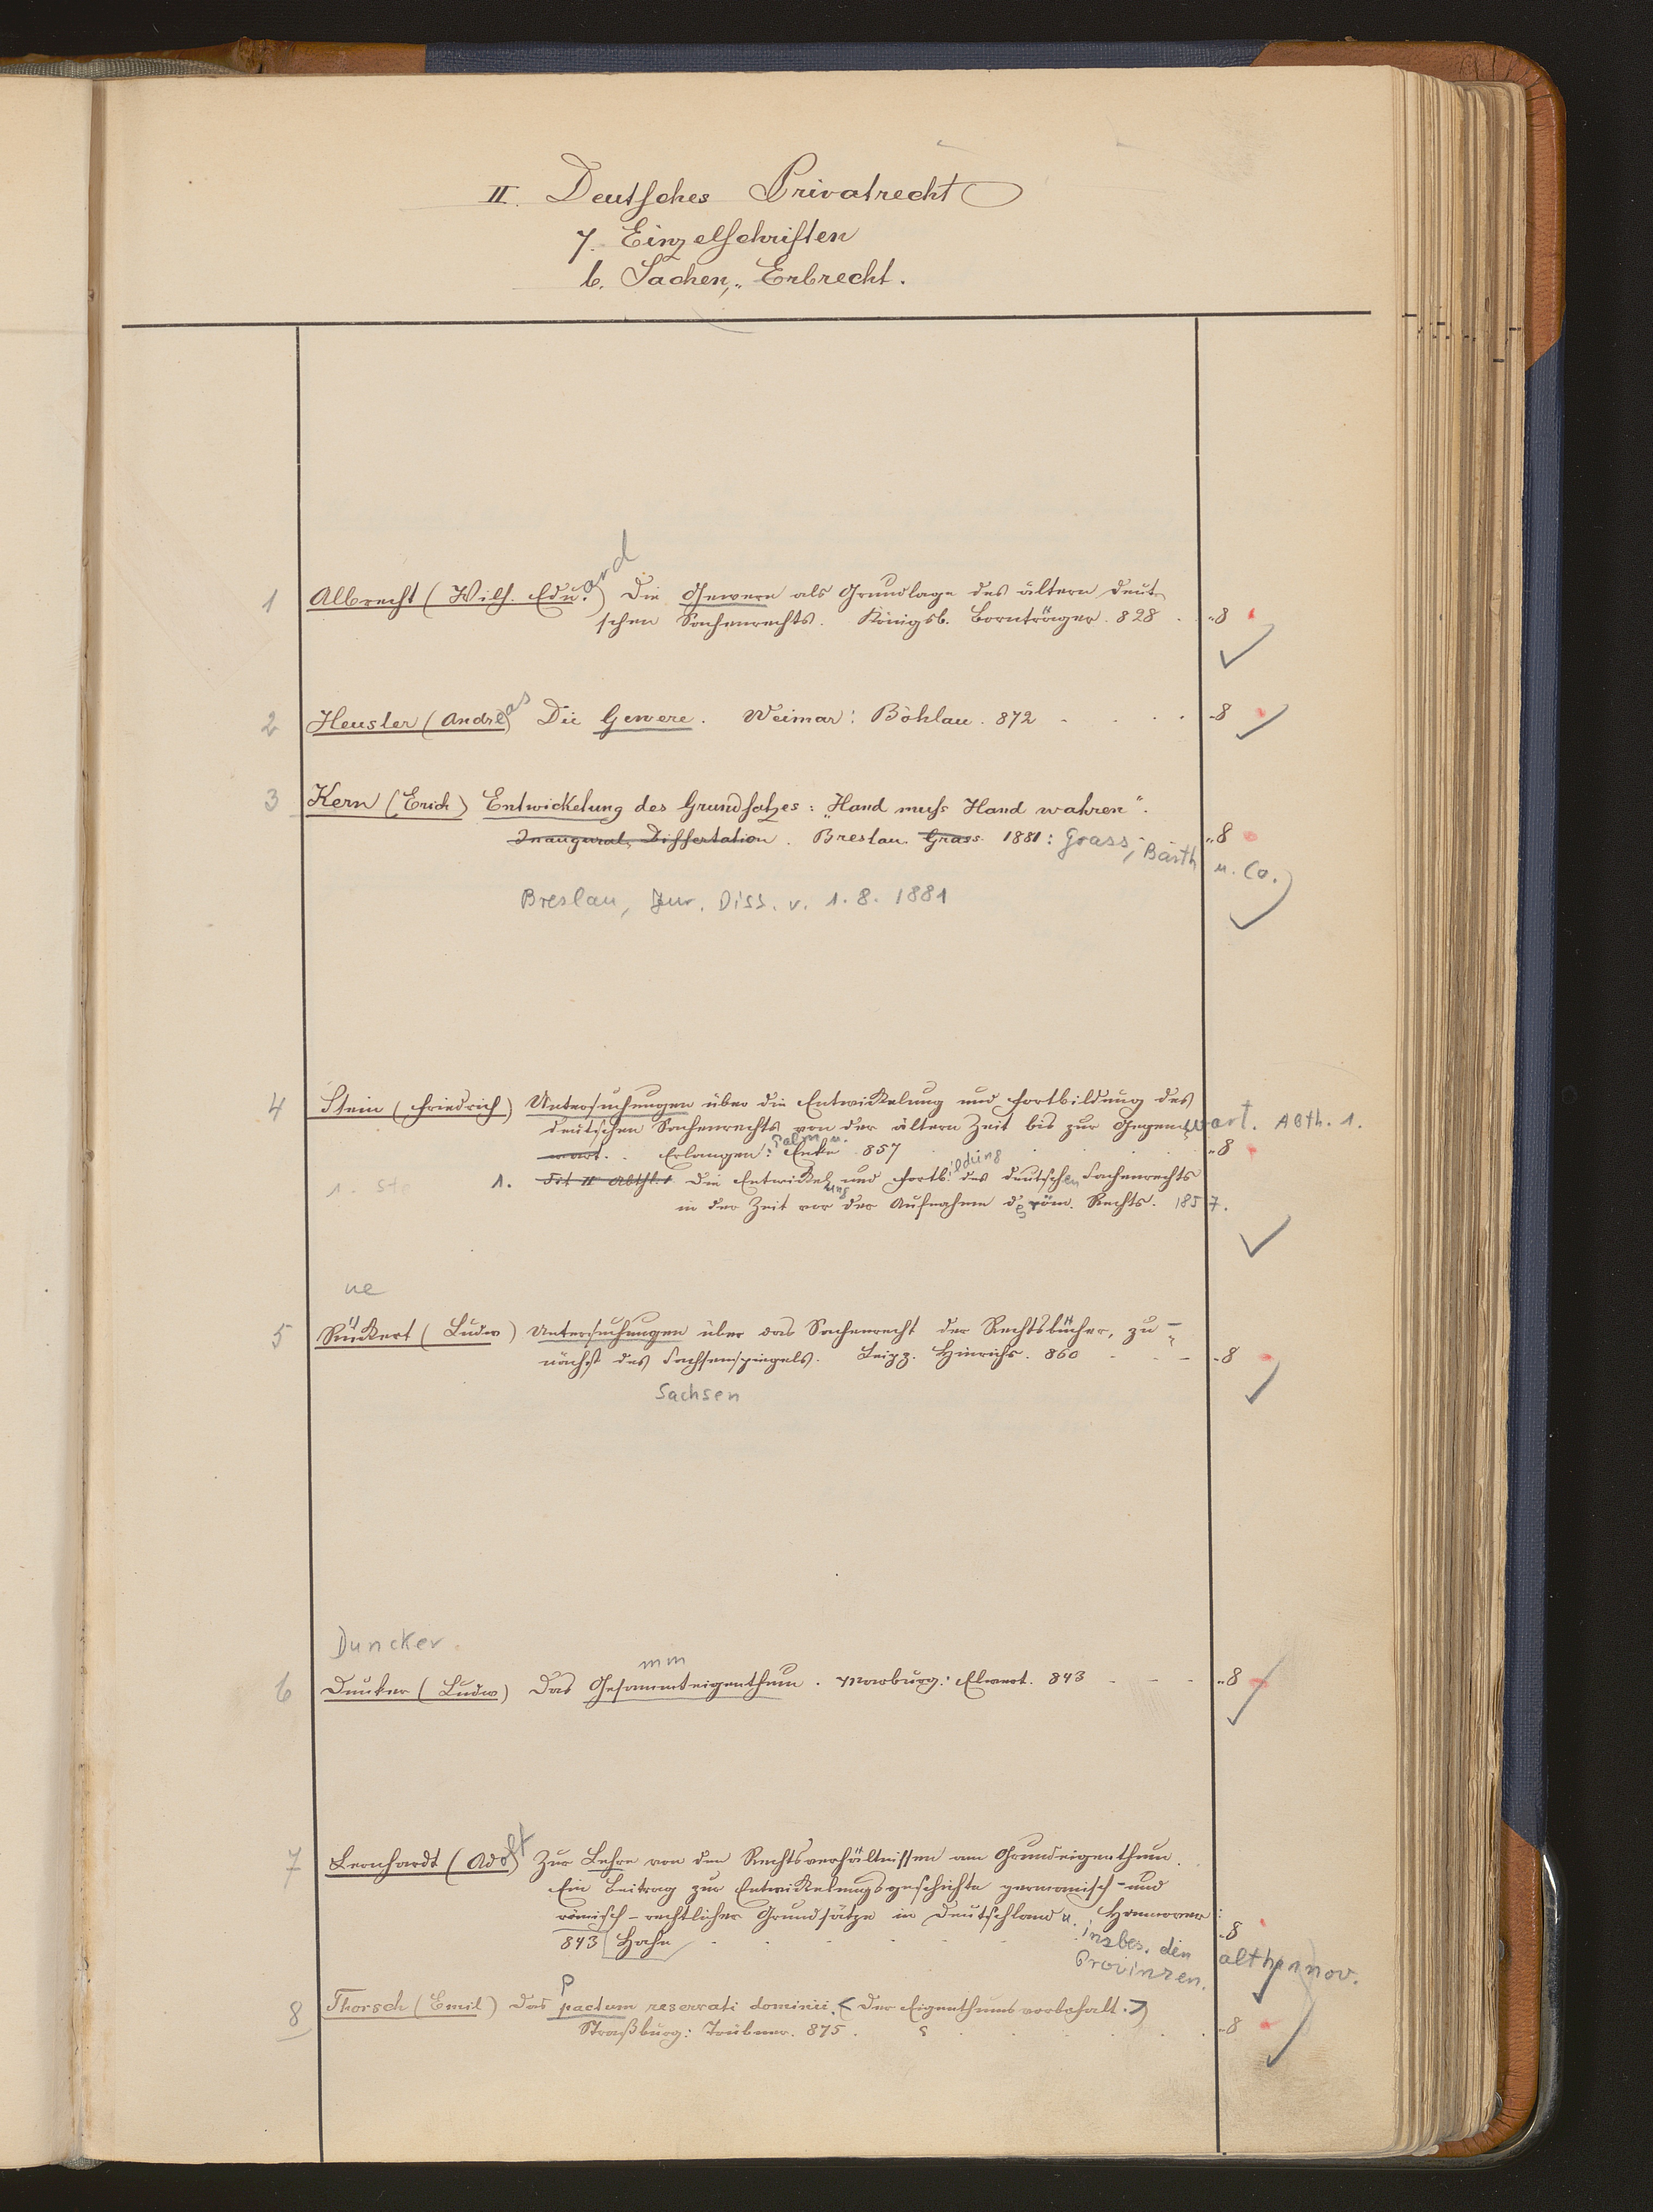 II. Deutsches Privatrecht
7. Einzelschriften
b. Sachen,, Erbrecht.
1 Albrecht (Wilh. Eduard) Die Gewere als Grundlage des ältern deut-
schen Sachenrechts. Königsb. Bornträger. 828 . . „8
2 Heusler (Andreas) Die Gewere. Weimar: Böhlau. 872 - . . . „8
3 Kern (Erich) Entwickelung des Grundsatzes: „Hand muss Hand wahren“.
Inaugural, Dissertation. Breslau. Grass. 1881: Grass, Barth u. Co. „8
Breslau, Jur. Diss. v. 1. 8. 1881
4 Stein (Friedrich) Untersuchungen über die Entwickelung und Fortbildung des
deutschen Sachenrechts von der ältern Zeit bis zur Gegenwart. Abth. 1.
wart. . Erlangen: Palm u. Enke 857 . . . „8
1. ste 1. Die Entwickelung und Fortbildung des deutschen Sachenrechts
in der Zeit vor der Aufnahme des röm. Rechts. 1857.
ue
5 Rückert (Ludw) Untersuchungen über das Sachenrecht der Rechtsbücher, zu-
nächst des Sachsenspiegels. Leipz. Hinrichs. 860 - - - „8
Sachsen
Duncker.
mm
6 Dunker (Ludw) Das Gesammteigenthum. Marburg: Elwert. 843 - - - „8
7 Leonhardt (Adolf) Zur Lehre von den Rechtsverhältnissen am Grundeigenthum.
Ein Beitrag zur Entwickelungsgeschichte germanisch-und
römisch-rechtlicher Grundsätze in Deutschland u. Hannover:
843 Hahn . . . . . „8
insbes. den althannov.
Provinzen.
P
8 Thorsch (Emil) Das pactum reservati dominii. < Der Eigenthumsvorbehalt. >
Straßburg: Trübner. 875. . . . . . „8